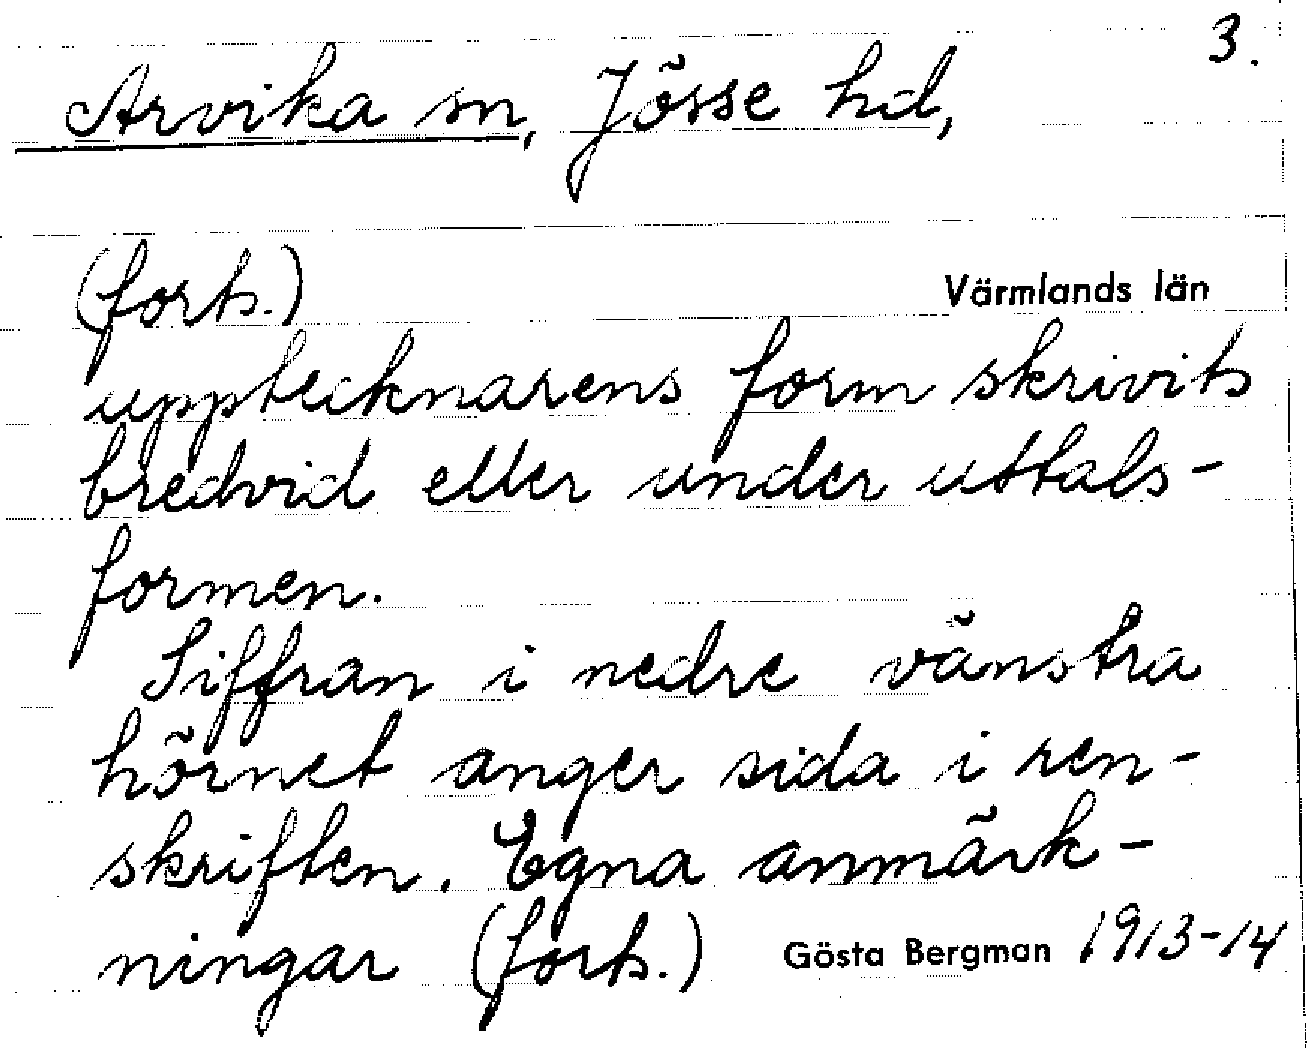 3.
Arvika sn, Jösse hd,
(forts.) Värmlands län
upptecknarens form skrivits
bredvid eller under uttals-
formen.
Siffran i nedre vänstra
hörnet anger sida i ren-
skriften. Egna anmärk-
ningar (forts.) Gösta Bergman 1913-14